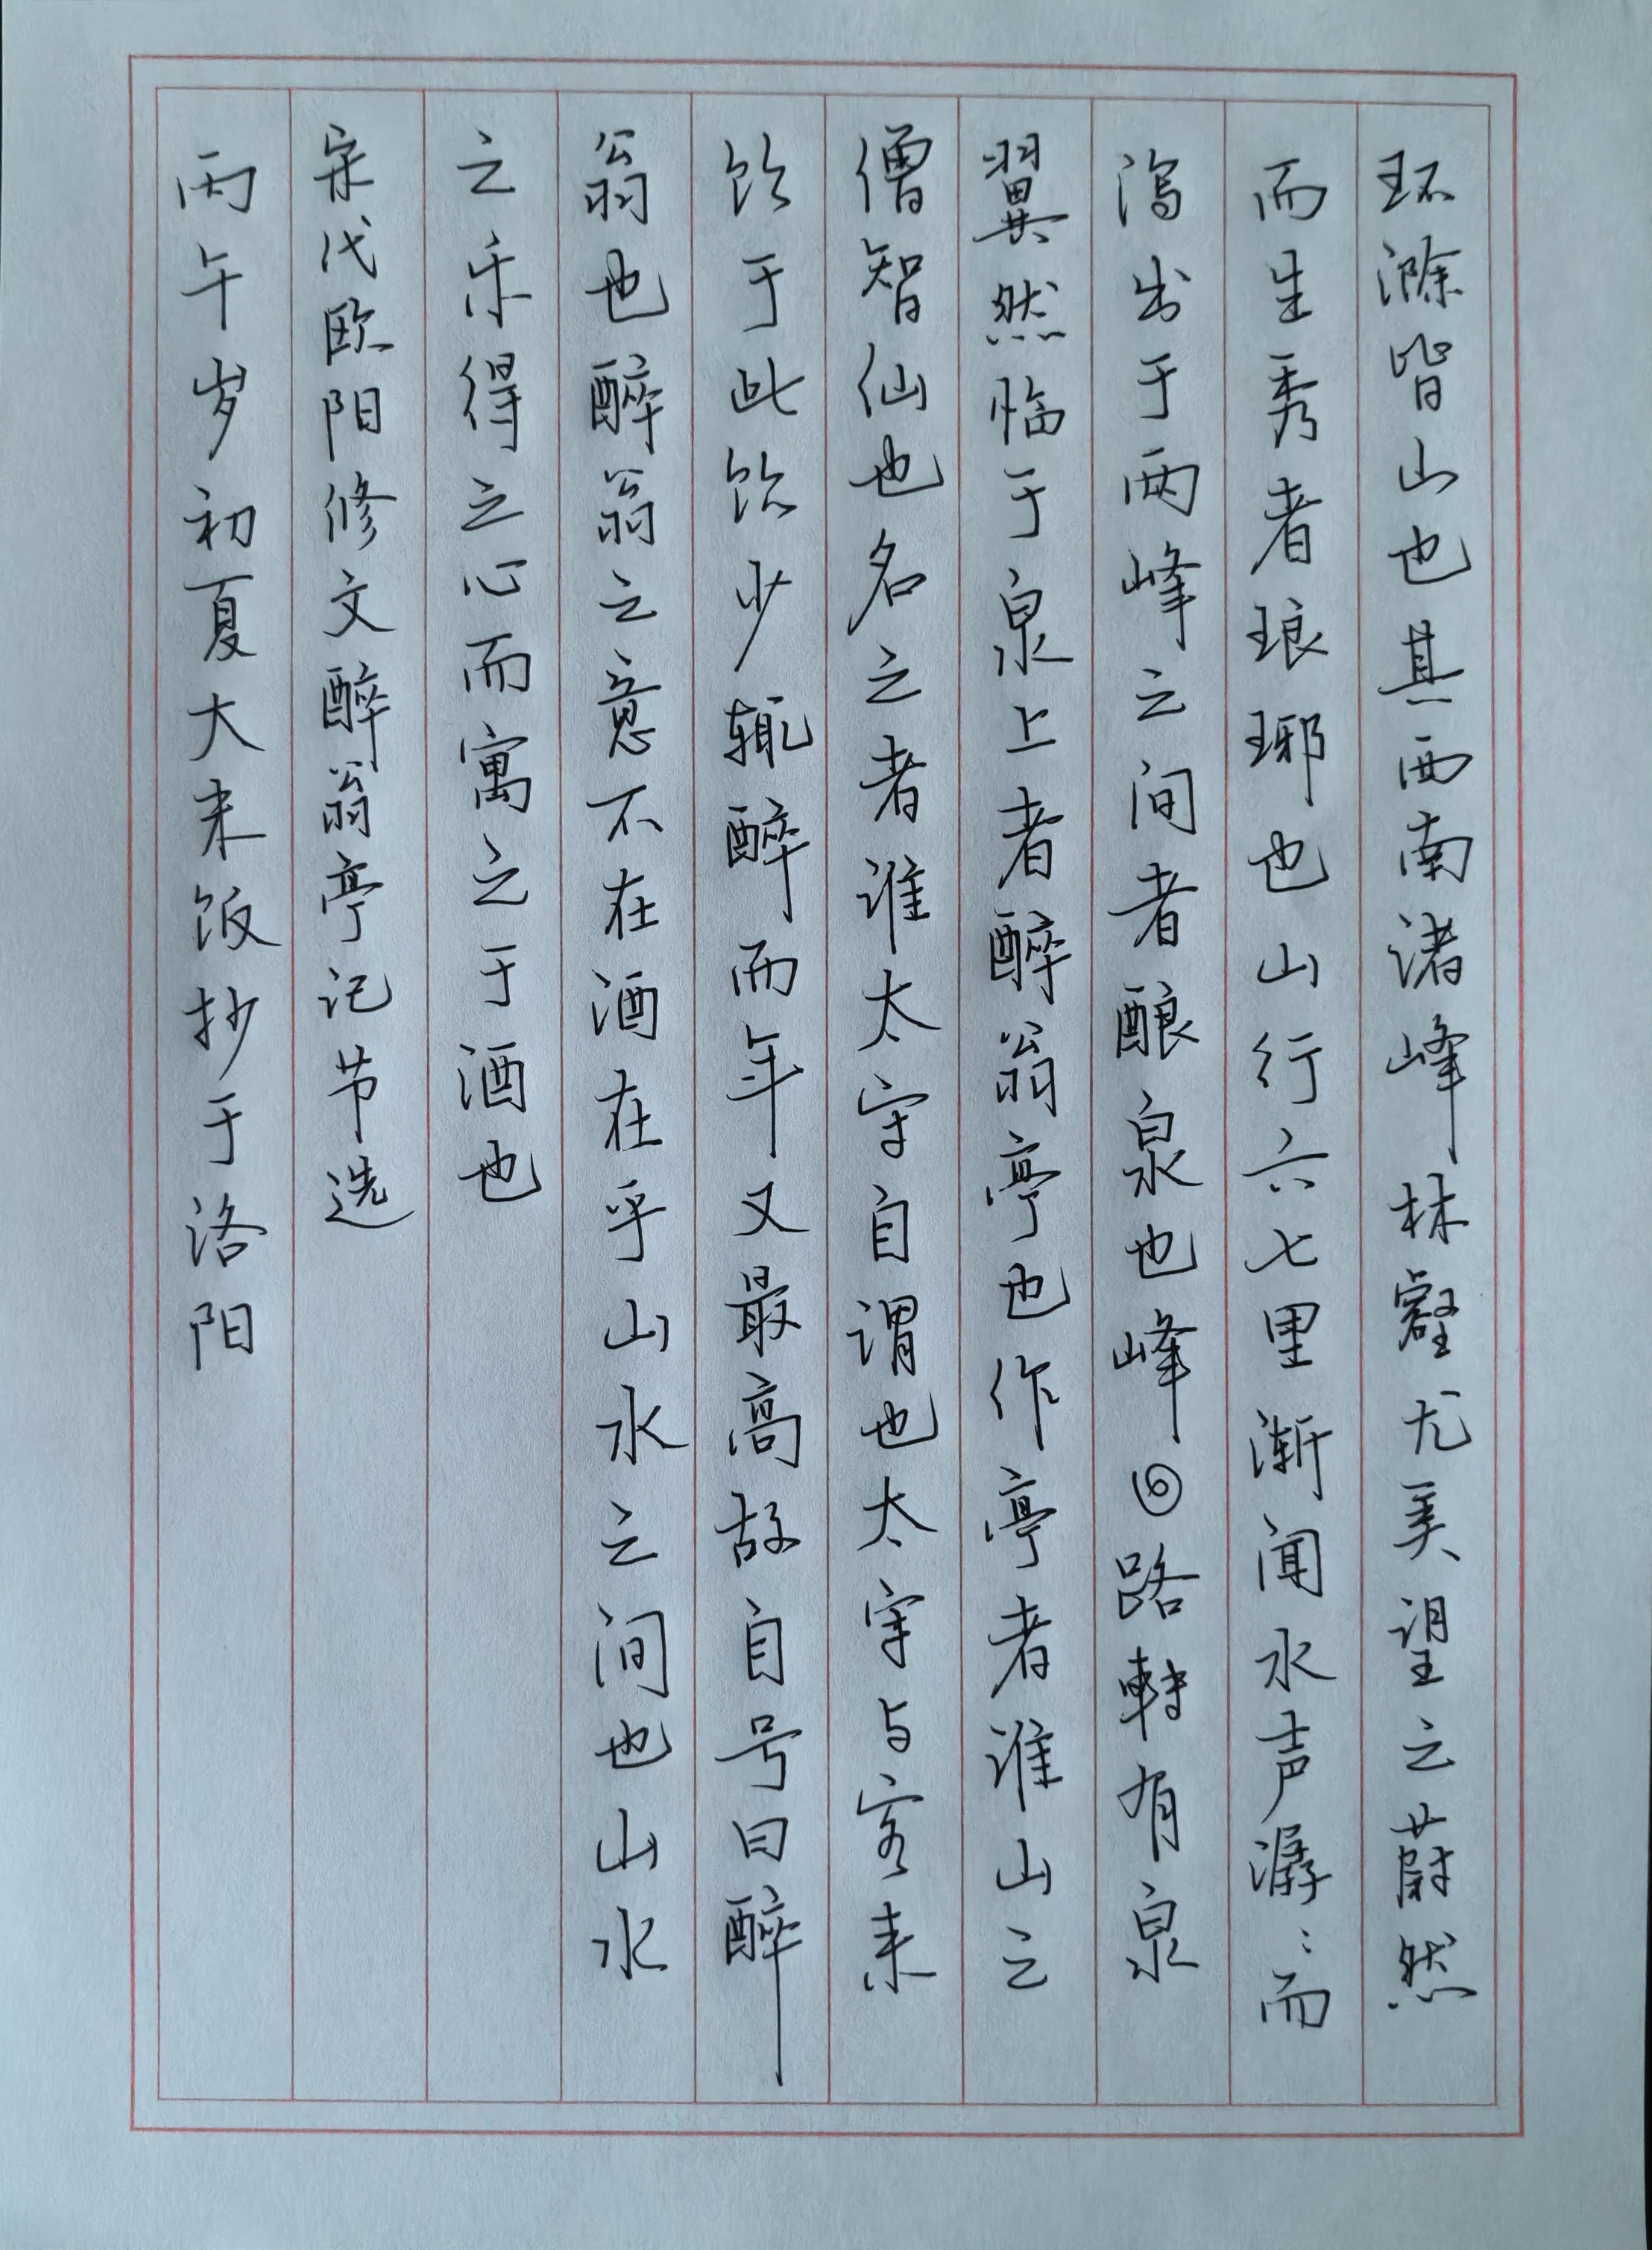 环滁皆山也其西南诸峰林壑尤美望之蔚然
而生秀者琅琊也山行六七里渐闻水声潺:而
泻出于两峰之间者酿泉也峰回路转有泉
翼然临于泉上者醉翁亭也作亭者谁山之
僧智仙也名之者谁太守自谓也太守与客来
饮于此饮少辄醉而年又最高故自号曰醉
翁也醉翁之意不在酒在乎山水之间也山水
之乐得之心而寓之于酒也
宋代欧阳修文醉翁亭记节选
丙午岁初夏大来饭抄于洛阳